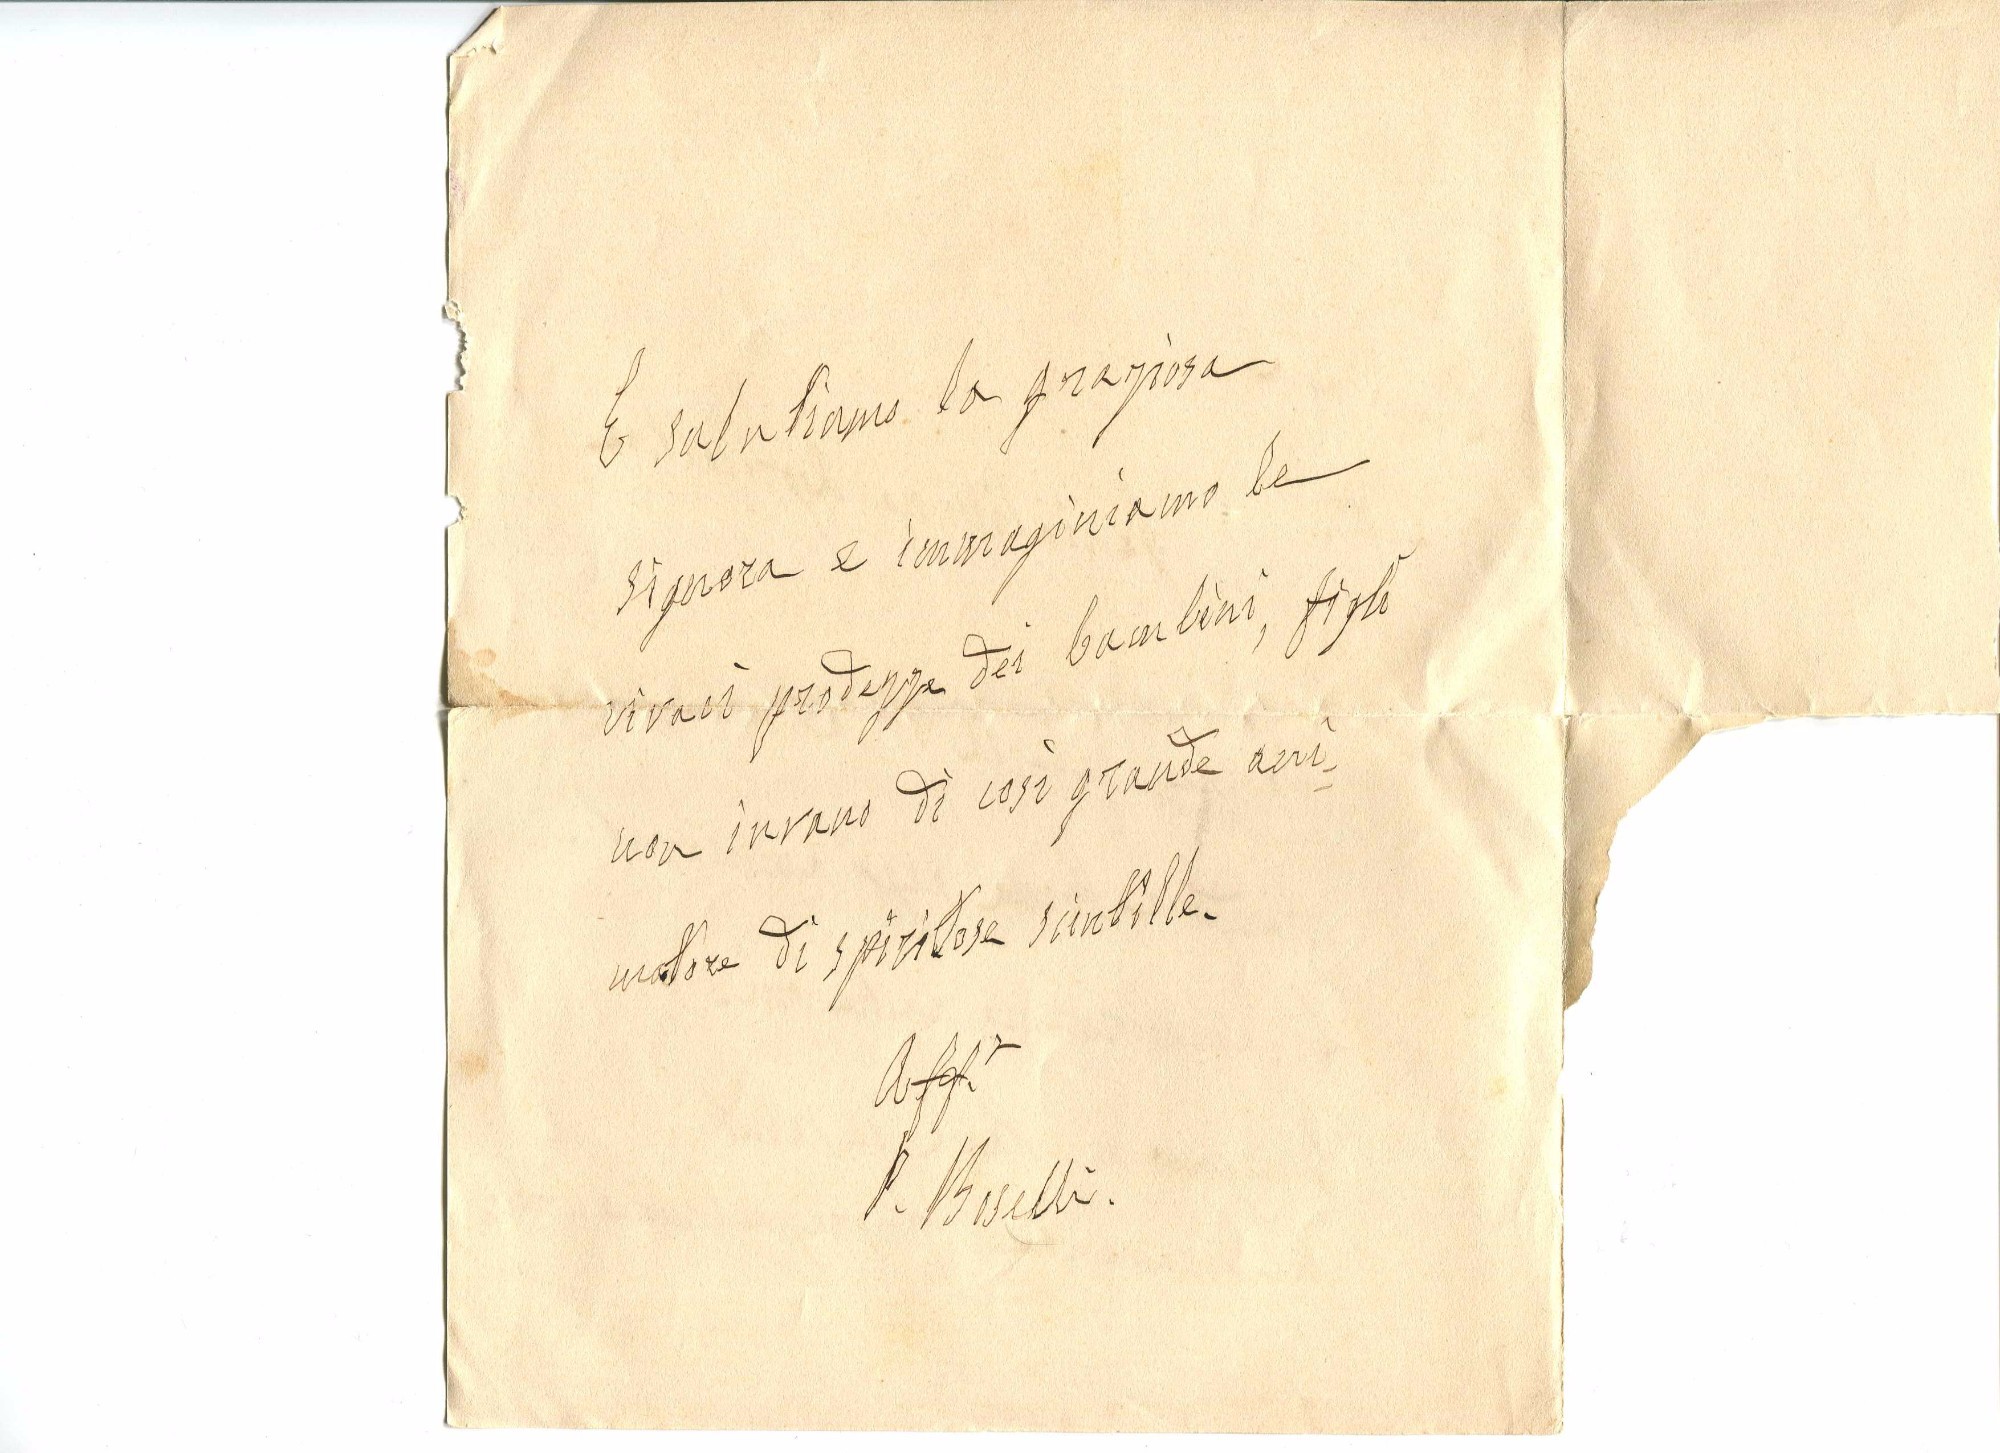 E salutiamo la graziosa
signora e immaginiamo le
vivaci prodezze dei bambini, figli
non invano di così grande ani=
matore di spiritose scintille.
Aff.
P. Boselli.